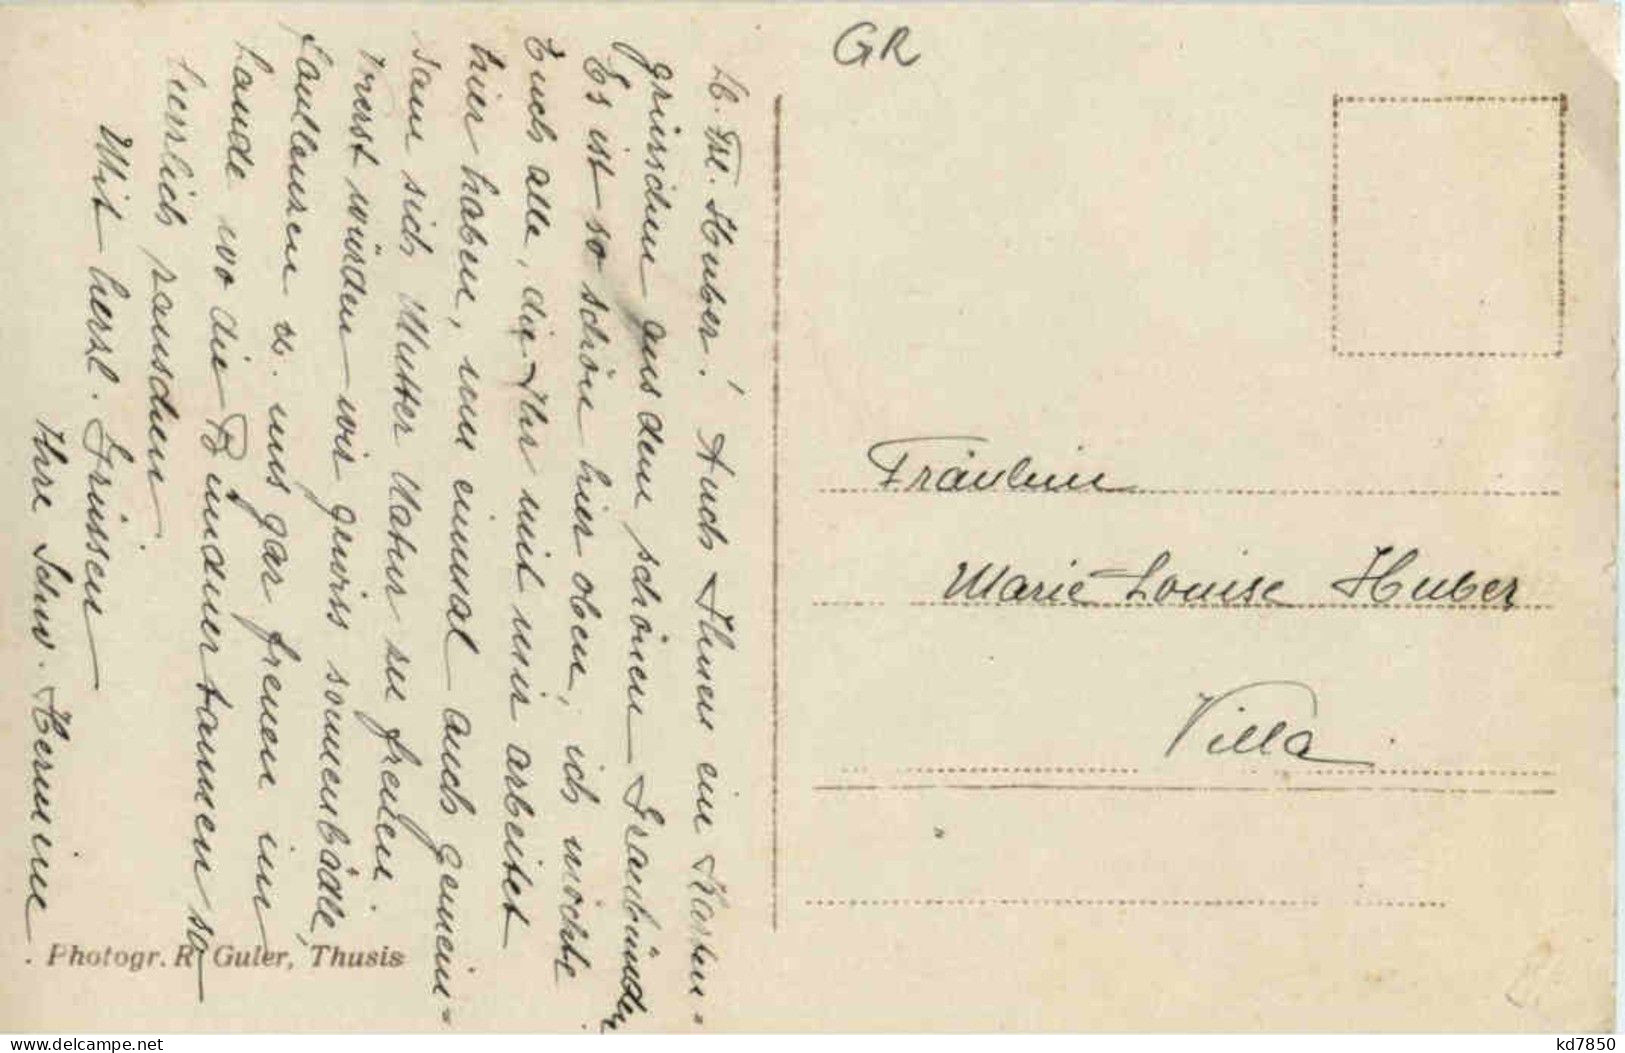 GR
Lb. Frl. Huber! Auch Ihnen ein Karten=
grüsschen aus dem schönen Graubünden
Es ist so schön hier oben, ich möchte
Euch alle, die Ihr mit mir arbeitet
hier haben, um einmal auch gemein=
sam sich Mutter Natur zu freuen.
Vrerst würden wir gewiss sonnenbädle,
faullenzen u. uns gar freuen im
Lande wo die Bündnertannen so
herrlich rauschen
Mit herzl. Grüssen
Ihre Schw. Hermine
Fräulein
Marie Louise Huber
Villa
Photogr. R. Guler, Thusis
kd7850